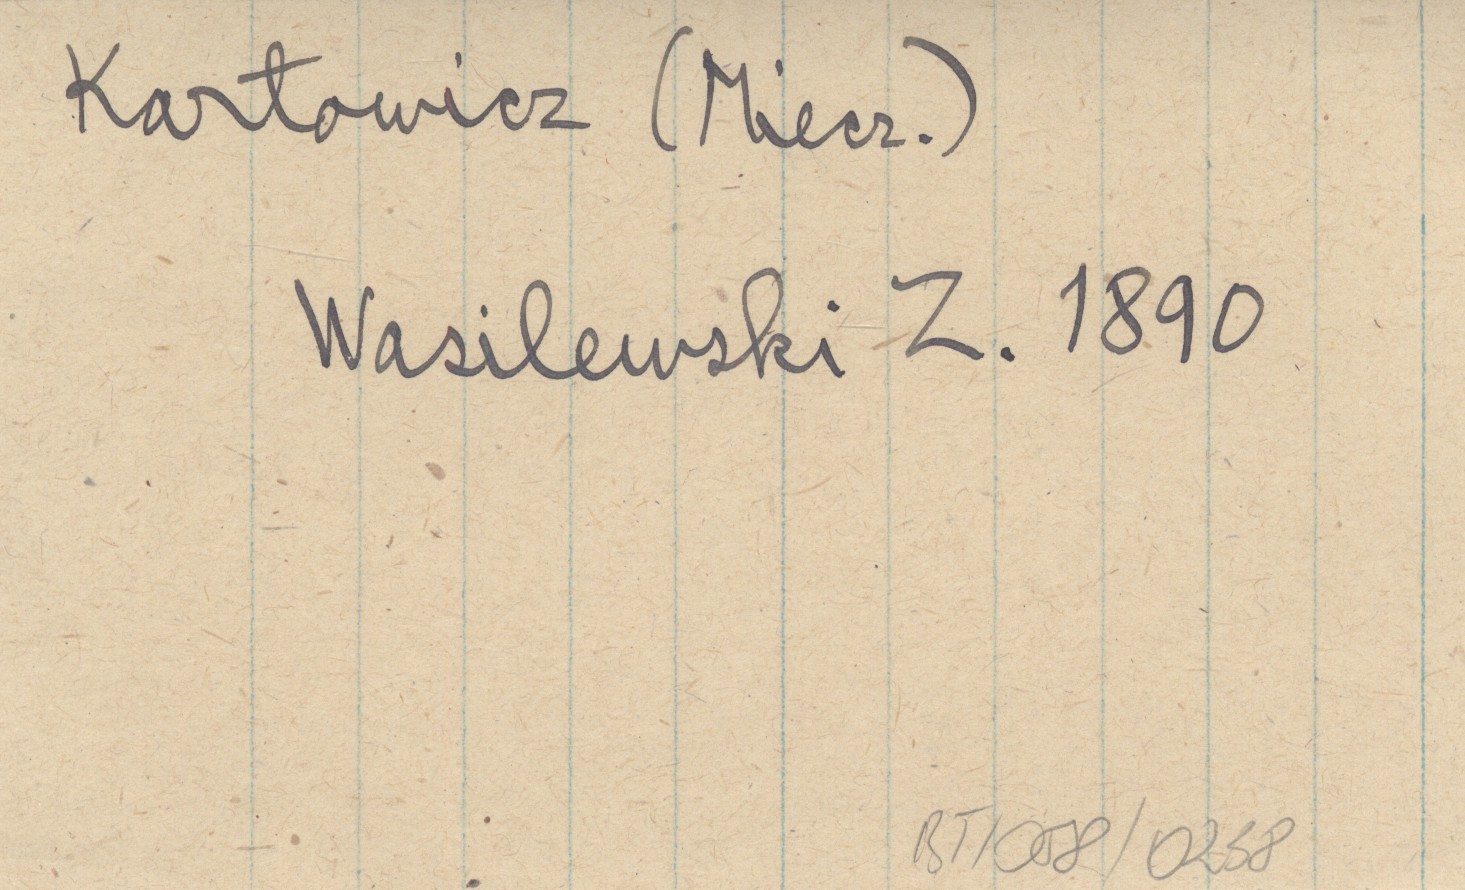 Karłowicz (Miecz.)
Wasilewski Z. 1890
BT/058/0258